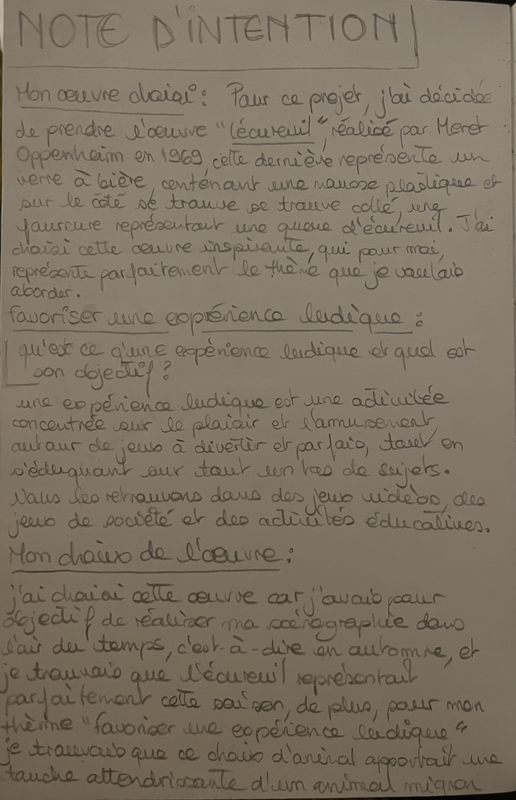 NOTE D'INTENTION
Mon œuvre choisi : Pour ce projet, j'ai décidée
de prendre l'œuvre "l'écureuil", réalisé par Meret
Oppenheim en 1969 cette dernière représente un
verre à bière, contenant une mousse plastique et
sur le côté se trouve se trouve collé, une
fourrure représentant une queue d'écureuil. J'ai
choisi cette œuvre inspirante, qui pour moi,
représente parfaitement le thème que je voulais
aborder.
favoriser une expérience ludique :
qu'est ce qu'une expérience ludique et quel est
son objectif ?
une expérience ludique est une activitée
concentrée sur le plaisir et l'amusement
autour de jeux à divertir et parfois, tout en
s'éduquant sur tout un tas de sujets.
Nous les retrouvons dans des jeux vidéos, des
jeux de société et des activités éducatives.
Mon choix de l'œuvre :
j'ai choisi cette œuvre car j'avais pour
objectif de réaliser ma scénographie dans
l'air du temps, c'est-à-dire en automne, et
je trouvais que l'écureuil représentait
parfaitement cette saison, de plus, pour mon
thème "favoriser une expérience ludique"
je trouvais que ce choix d'animal apportait une
touche attendrissante d'un animal mignon